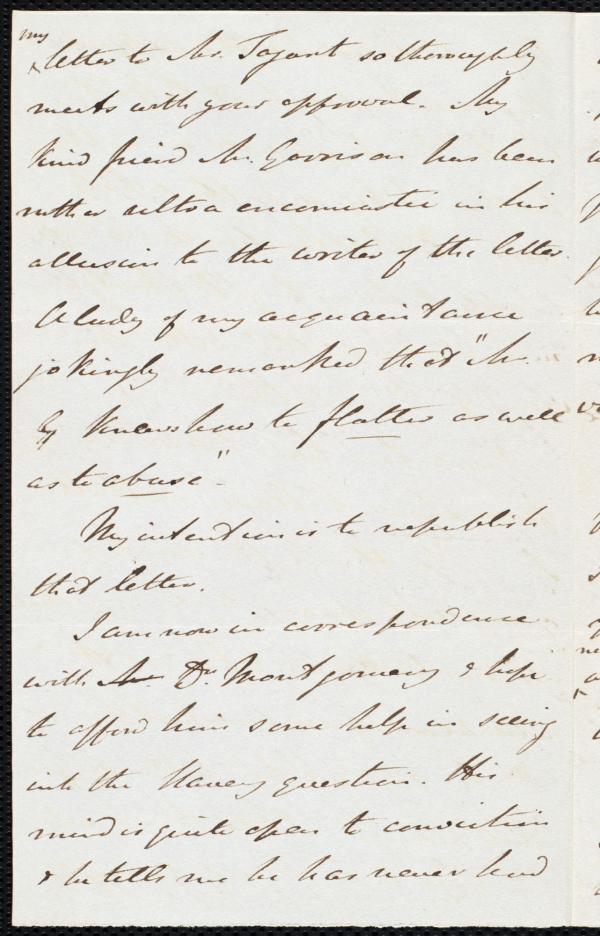 my
letter to Mr. Tagart so thoroughly
meets with your approval. My
kind friend Mr. Garrison has been
rather ultra encomiastic in his
allusion to the writer of the letter.
A lady of my acquaintance
jokingly remarked that "Mr.
G knows how to flatter as well
as to abuse".
My intention is to republish
that letter.
I am now in correspondence
with Mr Dr. Montgomery & hope
to afford him some help in seeing
into the slavery question. His
mind is quite open to conviction
& he tells me he has never had